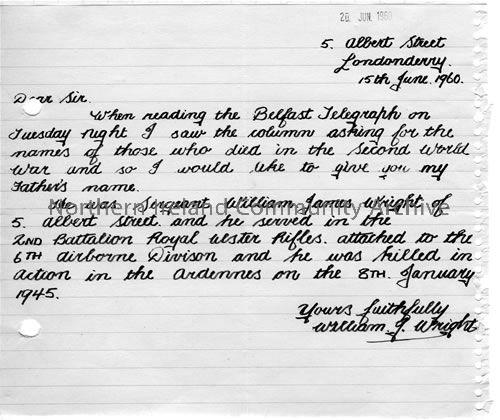 26 JUN 1960
5. Albert Street
Londonderry.
15th June. 1960.
Dear Sir.
When reading the Belfast Telegraph on
Tuesday night I saw the column asking for the
names of those who died in the Second World
War and so I would like to give you my
Father's name.
He was Sergeant William James Wright of
Northern Ireland Community Archive
5. Albert Street. and he served in the
2ND Battalion Royal Ulster Rifles. attached to the
6TH airborne Divison and he was killed in
Action in the Ardennes on the 8TH. January
1945.
Yours faithfully
William J. Wright